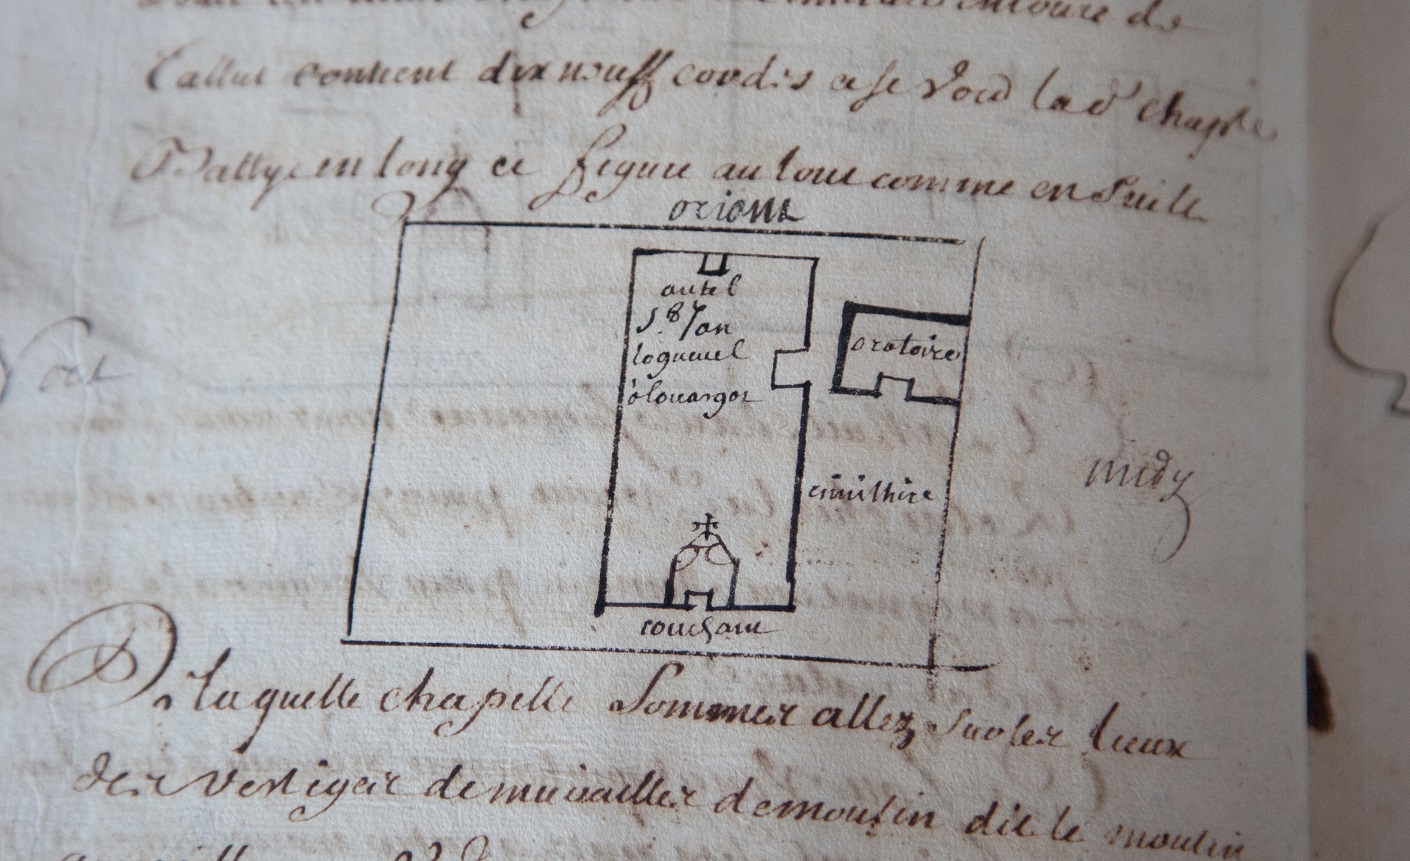 entouré de
contient dix neuff coudes et se void lad chaple
Battye en long et figure au tour comme en suitte
orient
autel
St Jan
logueuel
plouargor
oratoire
Nort
midy
cimithire
couchant
De laquelle chapelle sommes allez sur les lieux
des vestiges de murailles de moulin dit le moulin